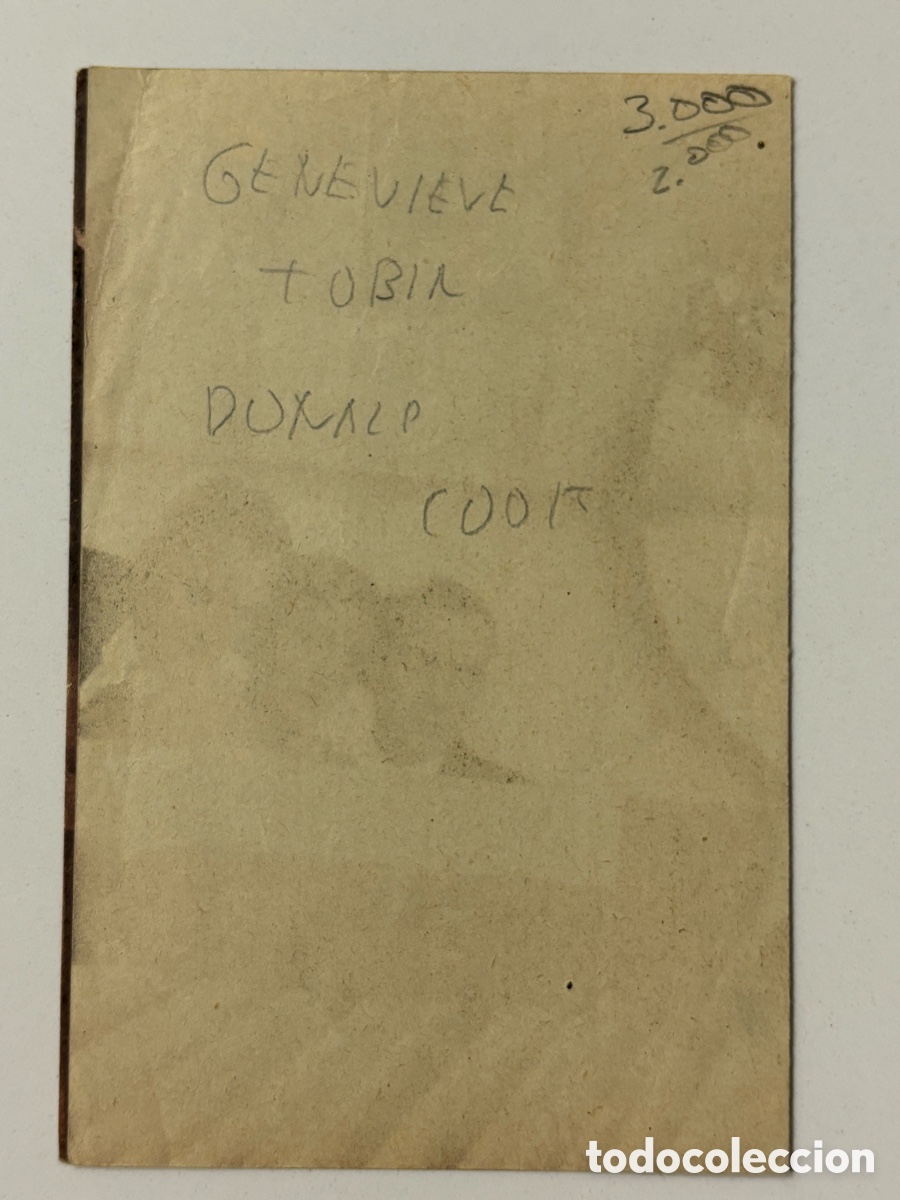 3.000
2.000.
GENEVIEVE
TOBIN
DONALD
COOK
todocoleccion